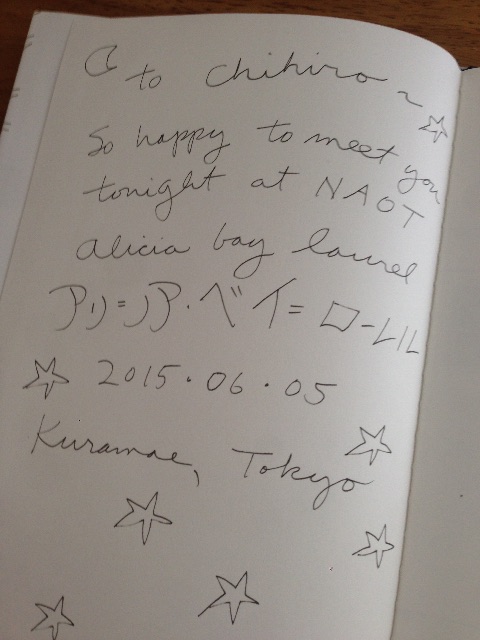 to chihiro ~
So happy to meet you
tonight at NAOT
alicia bay laurel
アリ=ア・ベイ=ローレル
2015.06.05
Kuramae, Tokyo